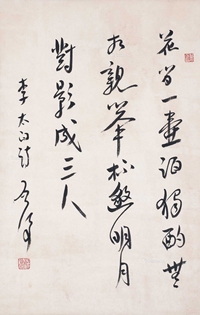 花間一壺酒獨酌無
相親舉杯邀明月
對影成三人
李太白詩